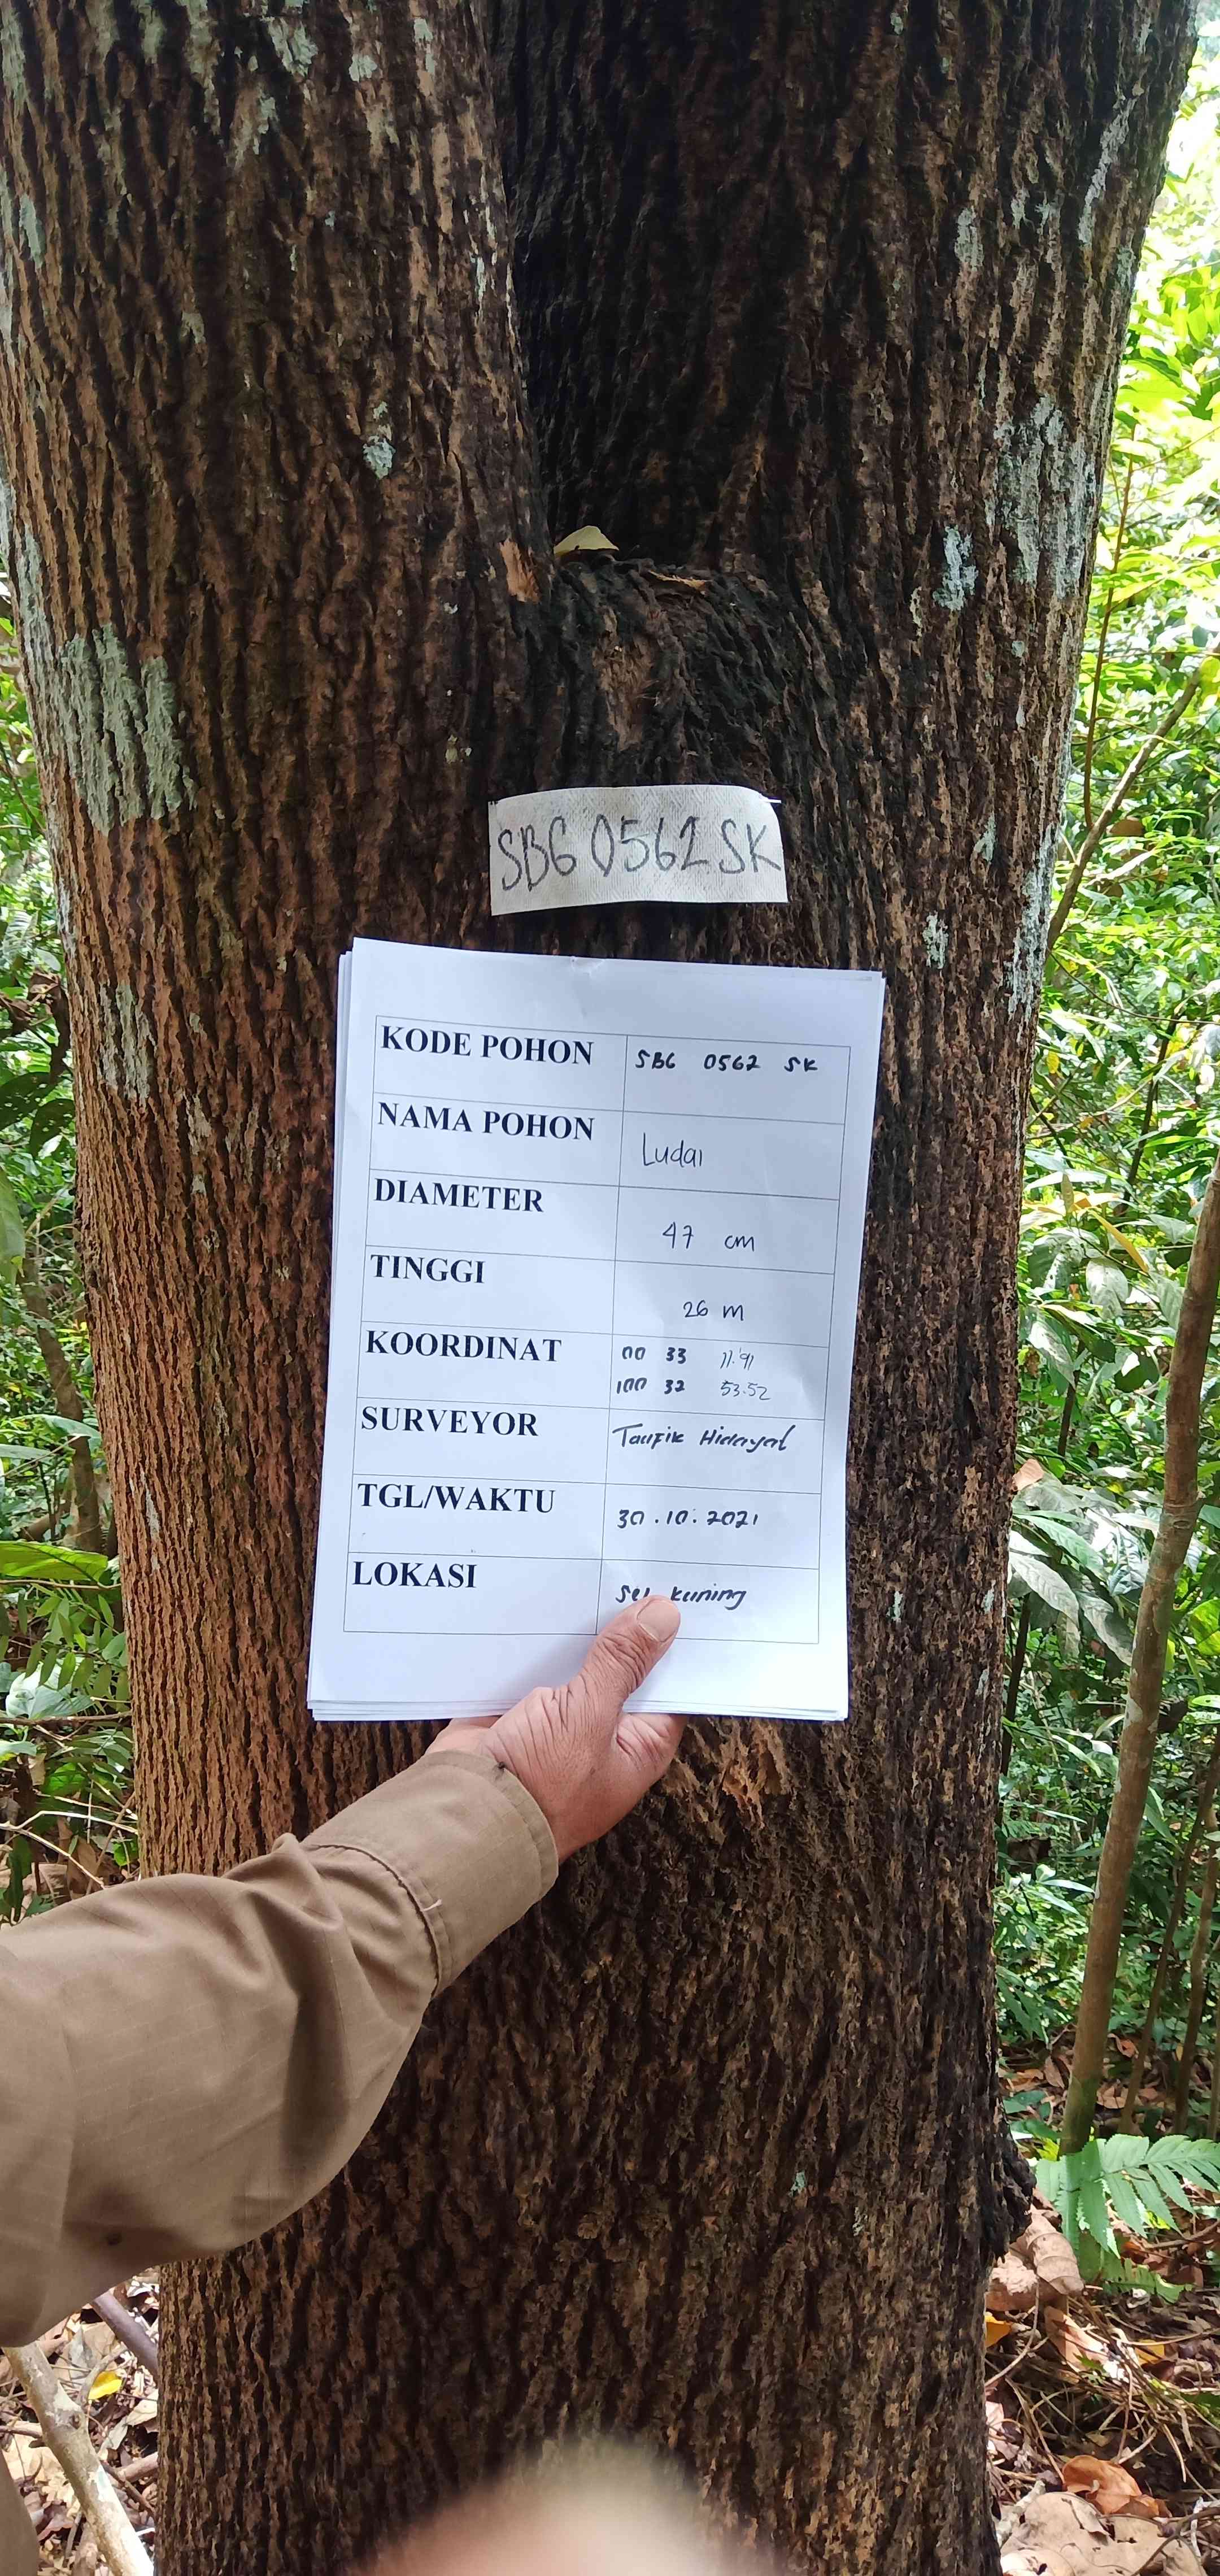 SBG 0562 SK
KODE POHON SBG 0562 SK
NAMA POHON Ludai
DIAMETER 47 cm
TINGGI 26 m
KOORDINAT 00 33 11.91
100 32 53.52
SURVEYOR Taufik Hidayat
TGL/WAKTU 30.10.2021
LOKASI kuning